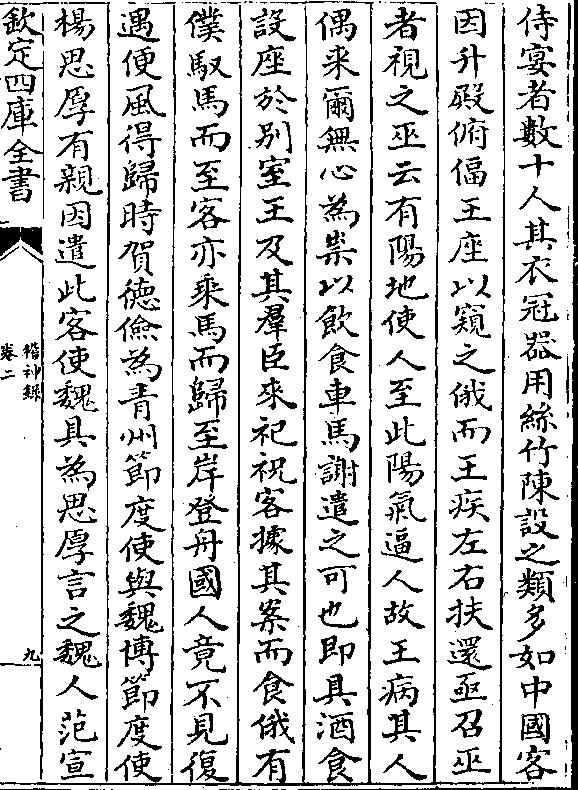 侍宴者數十人其衣冠器用絲竹陳設之類多如中國客
因升殿俯偪王座以窺之俄而王疾左右扶還亟召巫
者視之巫云有陽地使人至此陽氣逼人故王病其人
偶來爾無心為祟以飲食車馬謝遣之可也即具酒食
設座於別室王及其羣臣來祀祝客據其案而食俄有
僕馭馬而至客亦乘馬而歸至岸登舟國人竟不見復
遇便風得歸時賀德儉為青州節度使與魏博節度使
楊思厚有親因遣此客使魏具為思厚言之魏人范宣
欽定四庫全書
稽神錄
卷二
九